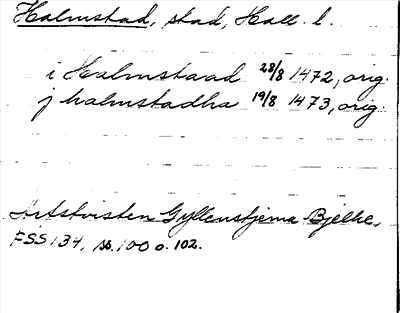 Halmstad, stad, Hall. l.
i Halmstaad 28/8 1472, orig.
j halmstadha 19/8 1473, orig.
Arvstvisten Gyllenstjerna Bjelke,
FSS 134, ss. 100 o. 102.